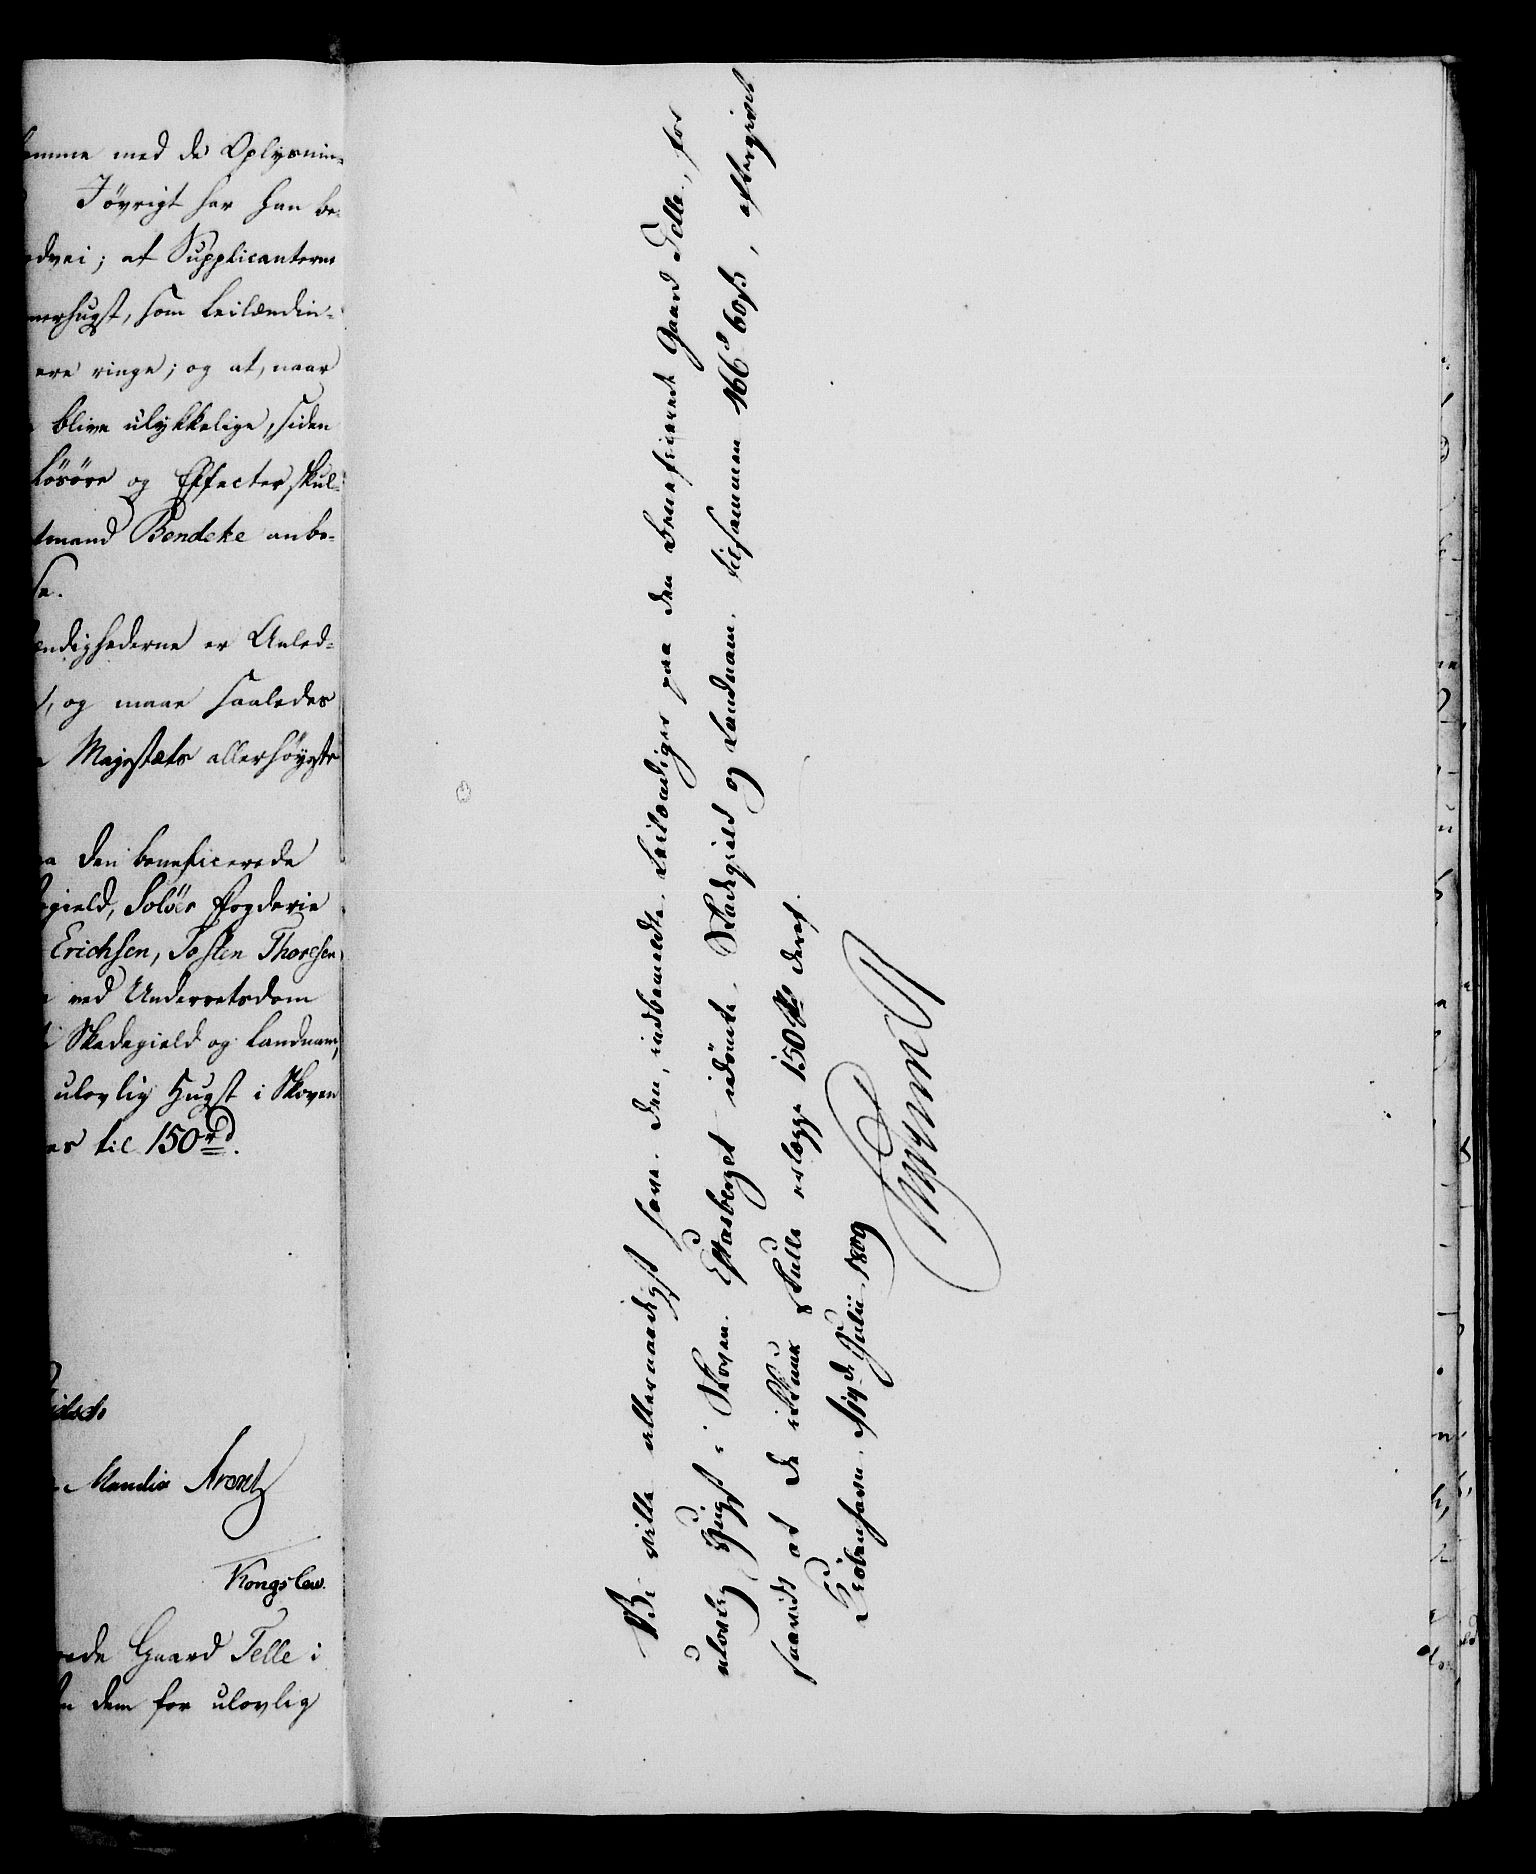 emme med de Oplysnin-
Iøvrigt har han be-
odvei; at Supplicanterne
merhugst, som Leilændin-
ere ringe; og at, naar
blive ulykkelige, siden
Løsøre og Effecter skul-
tmand Bendeke anbe-
se.
ændighederne er Anled-
, og maae saaledes
Majestæts allerhøyeste
a den beneficerede
egield, Soløer Fogderie
Erichsen, Tosten Thoresen,
ved Underretsdom
Skadegield og Landnam,
ulovlig Hugst i Skoven
es til 150 rd.
Mandix Arentz
Kongslew.
rede Gaard Telle i
dem for ulovlig
Vi ville allernaadigst have den, indbemeldte Leilændinger paa den beneficerede Gaard Telle, for
ulovlig Hugst i Skoven Estasberget idömte Skadegield og Landnam, tilsammen 466 d 60 ß, eftergivet
saavidt at de ikkun skulle erlægge 150 rd deraf.
Kiöbenhavn, den 19de Julii 1809